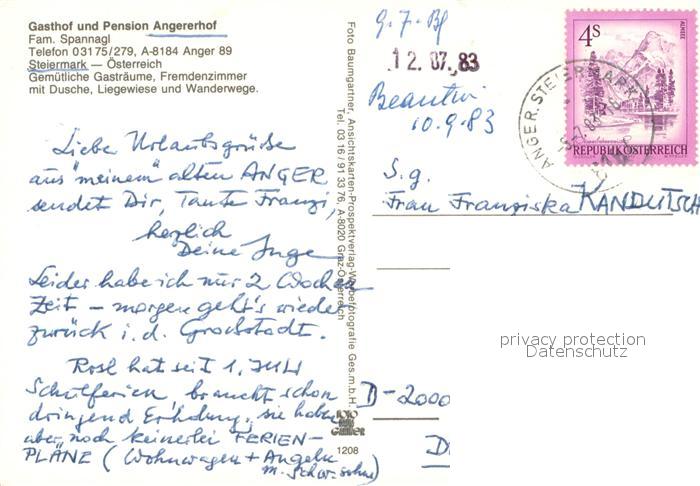 Gasthof und Pension Angererhof
Fam. Spannagl
Telefon 03175/279, A-8184 Anger 89
Steiermark — Österreich
Gemütliche Gasträume, Fremdenzimmer
mit Dusche, Liegewiese und Wanderwege.
Liebe Urlaubsgrüße
aus "meinem" alten ANGER
sendet Dir, Tante Franzi,
herzlich
Deine Inge
Leider habe ich nur 2 Wochen
Zeit – morgen geht's wieder
zurück i. d. Großstadt.
Rosl hat seit 1. JULI
Schulferien, braucht schon
dringend Erholung, sie haben
aber noch keinerlei FERIEN-
PLÄNE (Wohnwagen + Angeln
m.
Foto Baumgartner, Ansichtskarten-Prospektverlag-Werbefotografie Ges.m.b.H.
Tel. 03 16 / 91 33 76, A-8020 Graz-Österreich
1208
12. 07. 83
10.9.83
4s
ALMSEE
REPUBLIK ÖSTERREICH
ANGER, STEIERMARK
S. g.
Frau Franziska KANDUTSCH
privacy protection
Datenschutz
D-2000
D